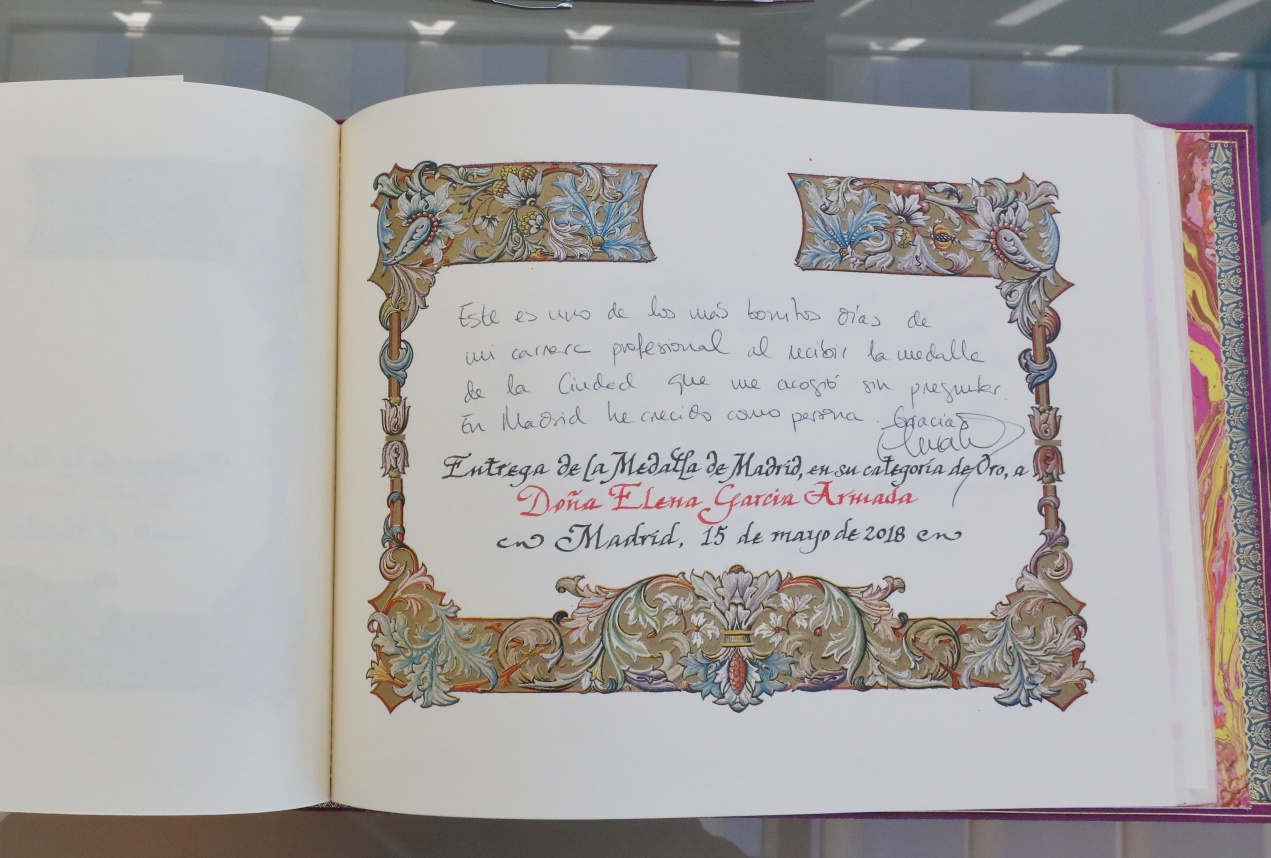 Este es uno de los más bonitos días de
mi carrera profesional al recibir la medalla
de la Ciudad que me acogió sin preguntar.
En Madrid he crecido como persona. Gracias
Entrega de la Medalla de Madrid, en su categoría de Oro, a
Doña Elena Garcia Armada
en Madrid, 15 de mayo de 2018 en